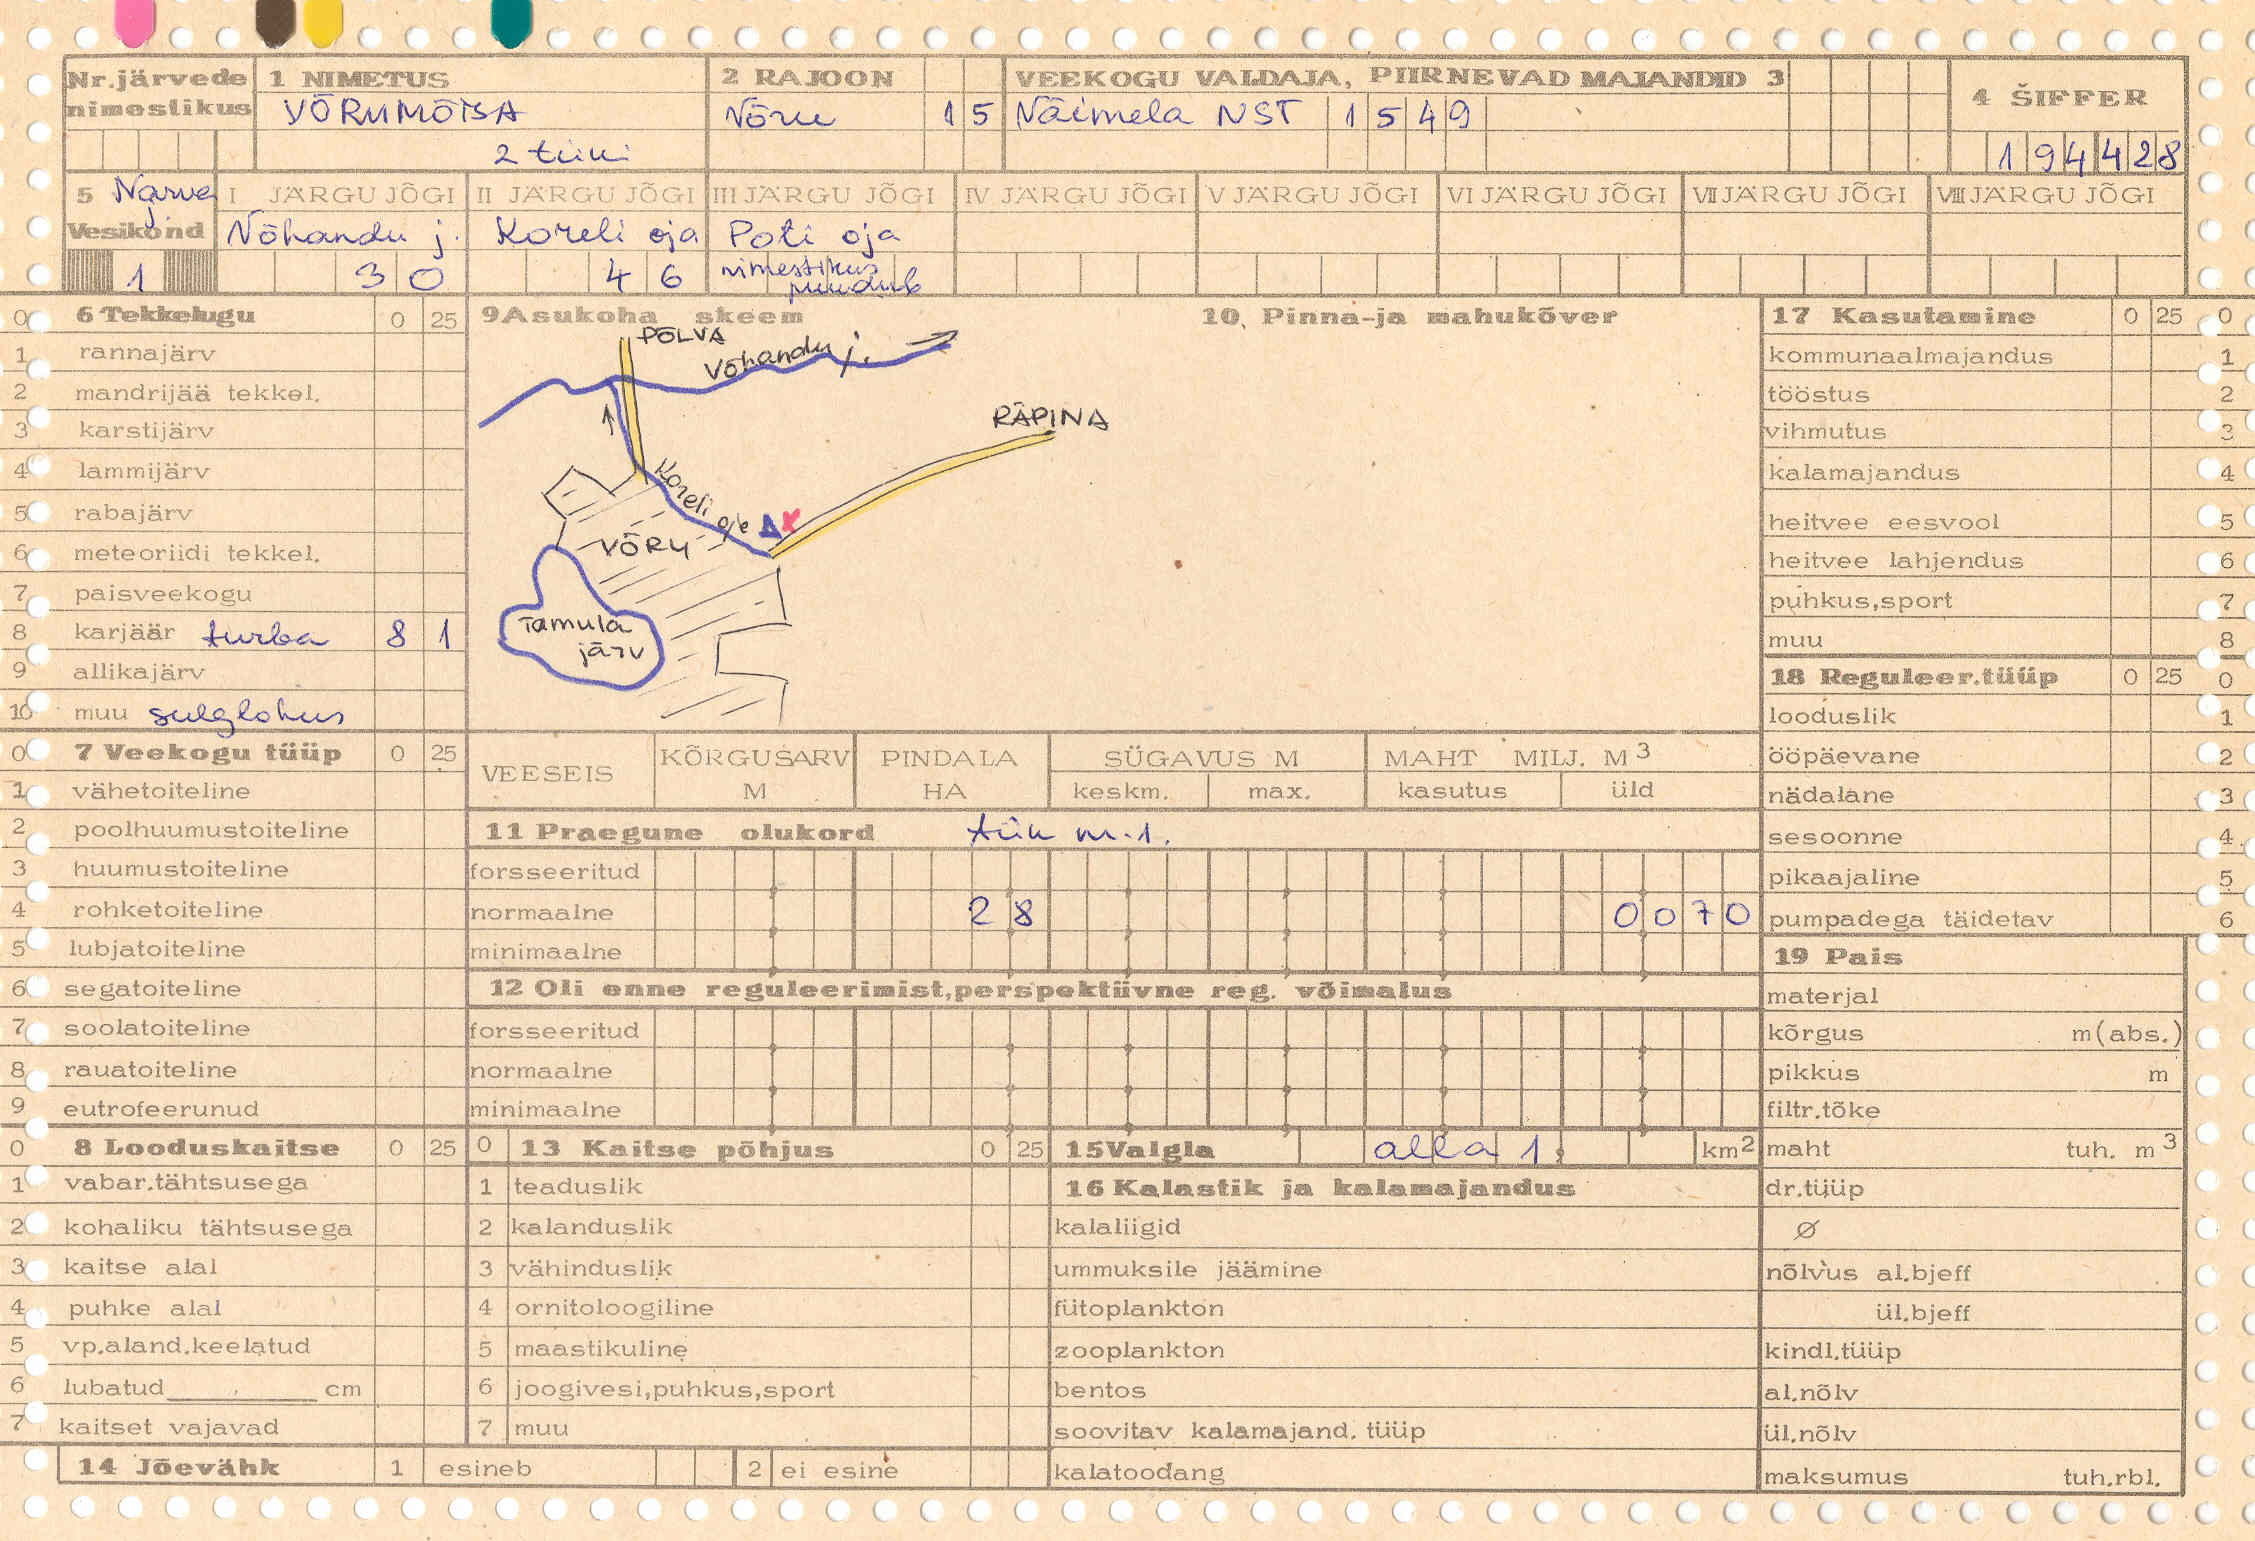 Nr.järvede nimestikus
1 NIMETUS
VÕRUMÕISA
2 tiiki
2 RAJOON
Võru 15
VEEKOGU VALDAJA, PIIRNEVAD MAJANDID 3
Näimela NST 1549
4 ŠIFFER
194428
5 Narva Vesikond
1
I JÄRGU JÕGI
Võhandu j.
30
II JÄRGU JÕGI
Koreli oja
46
III JÄRGU JÕGI
Poti oja
nimestikus puudub
IV JÄRGU JÕGI
V JÄRGU JÕGI
VI JÄRGU JÕGI
VII JÄRGU JÕGI
VIII JÄRGU JÕGI
0 6 Tekkelugu 0 25
1 rannajärv
2 mandrijää tekkel.
3 karstijärv
4 lammijärv
5 rabajärv
6 meteoriidi tekkel.
7 paisveekogu
8 karjäär turba 8 1
9 allikajärv
10 muu sulglohus
0 7 Veekogu tüüp 0 25
1 vähetoiteline
2 poolhuumustoiteline
3 huumustoiteline
4 rohketoiteline
5 lubjatoiteline
6 segatoiteline
7 soolatoiteline
8 rauatoiteline
9 eutrofeerunud
0 8 Looduskaitse 0 25
1 vabar.tähtsusega
2 kohaliku tähtsusega
3 kaitse alal
4 puhke alal
5 vp.aland.keelatud
6 lubatud cm
7 kaitset vajavad
9 Asukoha skeem
PÕLVA
Võhandu j.
RÄPINA
Koreli oja
VÕRU
Tamula järv
10. Pinna-ja mahukõver
VEESEIS
KÕRGUSARV M
PINDALA HA
SÜGAVUS M
keskm. max.
MAHT MILJ. M3
kasutus üld
11 Praegune olukord tiik nr. 1.
forsseeritud
normaalne 28 0070
minimaalne
12 Oli enne reguleerimist,perspektiivne reg. võimalus
forsseeritud
normaalne
minimaalne
0 13 Kaitse põhjus 0 25
1 teaduslik
2 kalanduslik
3 vähinduslik
4 ornitoloogiline
5 maastikuline
6 joogivesi,puhkus,sport
7 muu
14 Jõevähk 1 esineb 2 ei esine
15 Valgla alla 1 km2
16 Kalastik ja kalamajandus
kalaliigid
ummuksile jäämine
fütoplankton
zooplankton
bentos
soovitav kalamajand. tüüp
kalatoodang
17 Kasutamine 0 25 0
kommunaalmajandus 1
tööstus 2
vihmutus 3
kalamajandus 4
heitvee eesvool 5
heitvee lahjendus 6
puhkus,sport 7
muu 8
18 Reguleer.tüüp 0 25 0
looduslik 1
ööpäevane 2
nädalane 3
sesoonne 4
pikaajaline 5
pumpadega täidetav 6
19 Pais
materjal
kõrgus m(abs.)
pikkus m
filtr.tõke
maht tuh. m3
dr.tüüp
Ø
nõlvus al.bjeff
ül.bjeff
kindl.tüüp
al.nõlv
ül.nõlv
maksumus tuh.rbl.